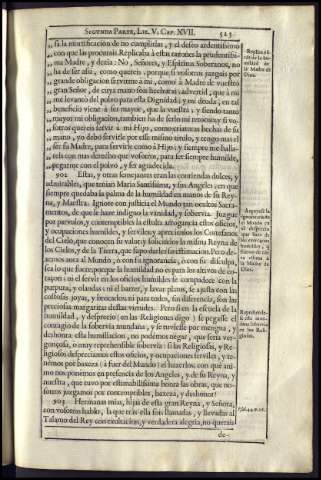 SEGUNDA PARTE, LIB. V. CAP. XVII. 523
„ sa la mortificacion de no cumplidas, y el deseo ardentissimo
„ con que las procurais. Replicaba à estas razones la prudentissi-
„ ma Madre, y dezia: No, Señores, y Espiritus Soberanos, no
„ ha de ser assi, como quereis; porque si vosotros juzgais por
„ grande obligacion servirme à mi, como à Madre de vuestro
„ gran Señor, de cuya mano sois hechuras; advertid, que à mi
„ me levantò del polvo para esta Dignidad; y mi deuda, en tal
„ beneficio viene à ser mayor, que la vuestra; y siendo tanto
„ mayor mi obligacion, tambien ha de serlo mi retorno; y si vo-
„ sotros quereis servir à mi Hijo, como criaturas hechas de su
„ mano, yo debo servirle por este mismo titulo, y tengo mas el
„ ser su Madre, para servirle como à Hijo; y siempre me halla-
„ reis con mas derecho que vosotros, para ser siempre humilde,
„ pegarme con el polvo, y ser agradecida.
902 Estas, y otras semejantes eran las contiendas dulces, y
admirables, que tenian Maria Santissima, y sus Angeles; en que
siempre quedaba la palma de la humildad en manos de su Rey-
na, y Maestra. Ignore con justicia el Mundo tan ocultos Sacra-
mentos, de que le hace indigno la vanidad, y sobervia. Juzgue
por parvulos, y contemptibles la estulta arrogancia estos oficios,
y ocupaciones humildes, y serviles; y aprecienlos los Cortesanos
del Cielo, que conocen su valor, y solicitelos la misma Reyna de
los Cielos, y de la Tierra, que supo darles su estimacion. Pero de-
xemos aora al Mundo, ò con su ignorancia, ò con su disculpa,
sea lo que fuere; porque la humildad no es para los altivos de co-
raçon; ni el servir en los oficios humildes se compadece con la
purpura, y olandas; ni el barrer, y lavar platos, se ajusta con las
costosas joyas, y brocados; ni para todos, sin diferencia, son las
preciosas margaritas destas virtudes. Pero si en la escuela de la
humildad, y desprecio (en las Religiones digo) se pegasse el
contagio de la sobervia mundana, y se tuviesse por mengua, y
deshonra esta humillacion, no podemos negar, que seria ver-
gonçosa, ò muy reprehensible sobervia: si las Religiosas, y Re-
ligiosos despreciamos estos oficios, y ocupaciones serviles, y te-
nemos por baxeza (à fuer del Mundo) el hazerlos; con què ani-
mo nos ponemos en presencia de los Angeles, y de su Reyna, y
nuestra, que tuvo por estimabilissima honra las obras, que no-
sotros juzgamos por contemptibles, baxeza, y deshonor?
903 Hermanas mias, hijas de esta gran Reyna, y Señora,
con vosotras hablo, la que tras ella sois llamadas, y llevadas al
Talamo del Rey con exultacion, y verdadera alegria, no querais
de-
Psal. 44. v. 16.